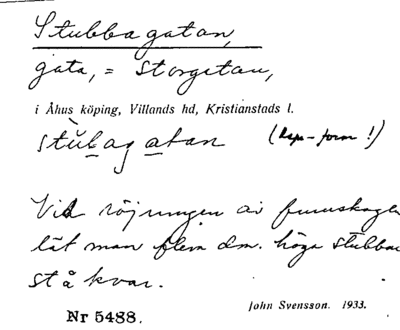 Stubbagatan,
gata, = Storgatan,
i Åhus köping, Villands hd, Kristianstads l.
stŭbagatan (Rsp-form!)
Vid röjningen av furuskogen
lät man flera dm. höga stubbar
stå kvar.
John Svensson. 1933.
Nr 5488.